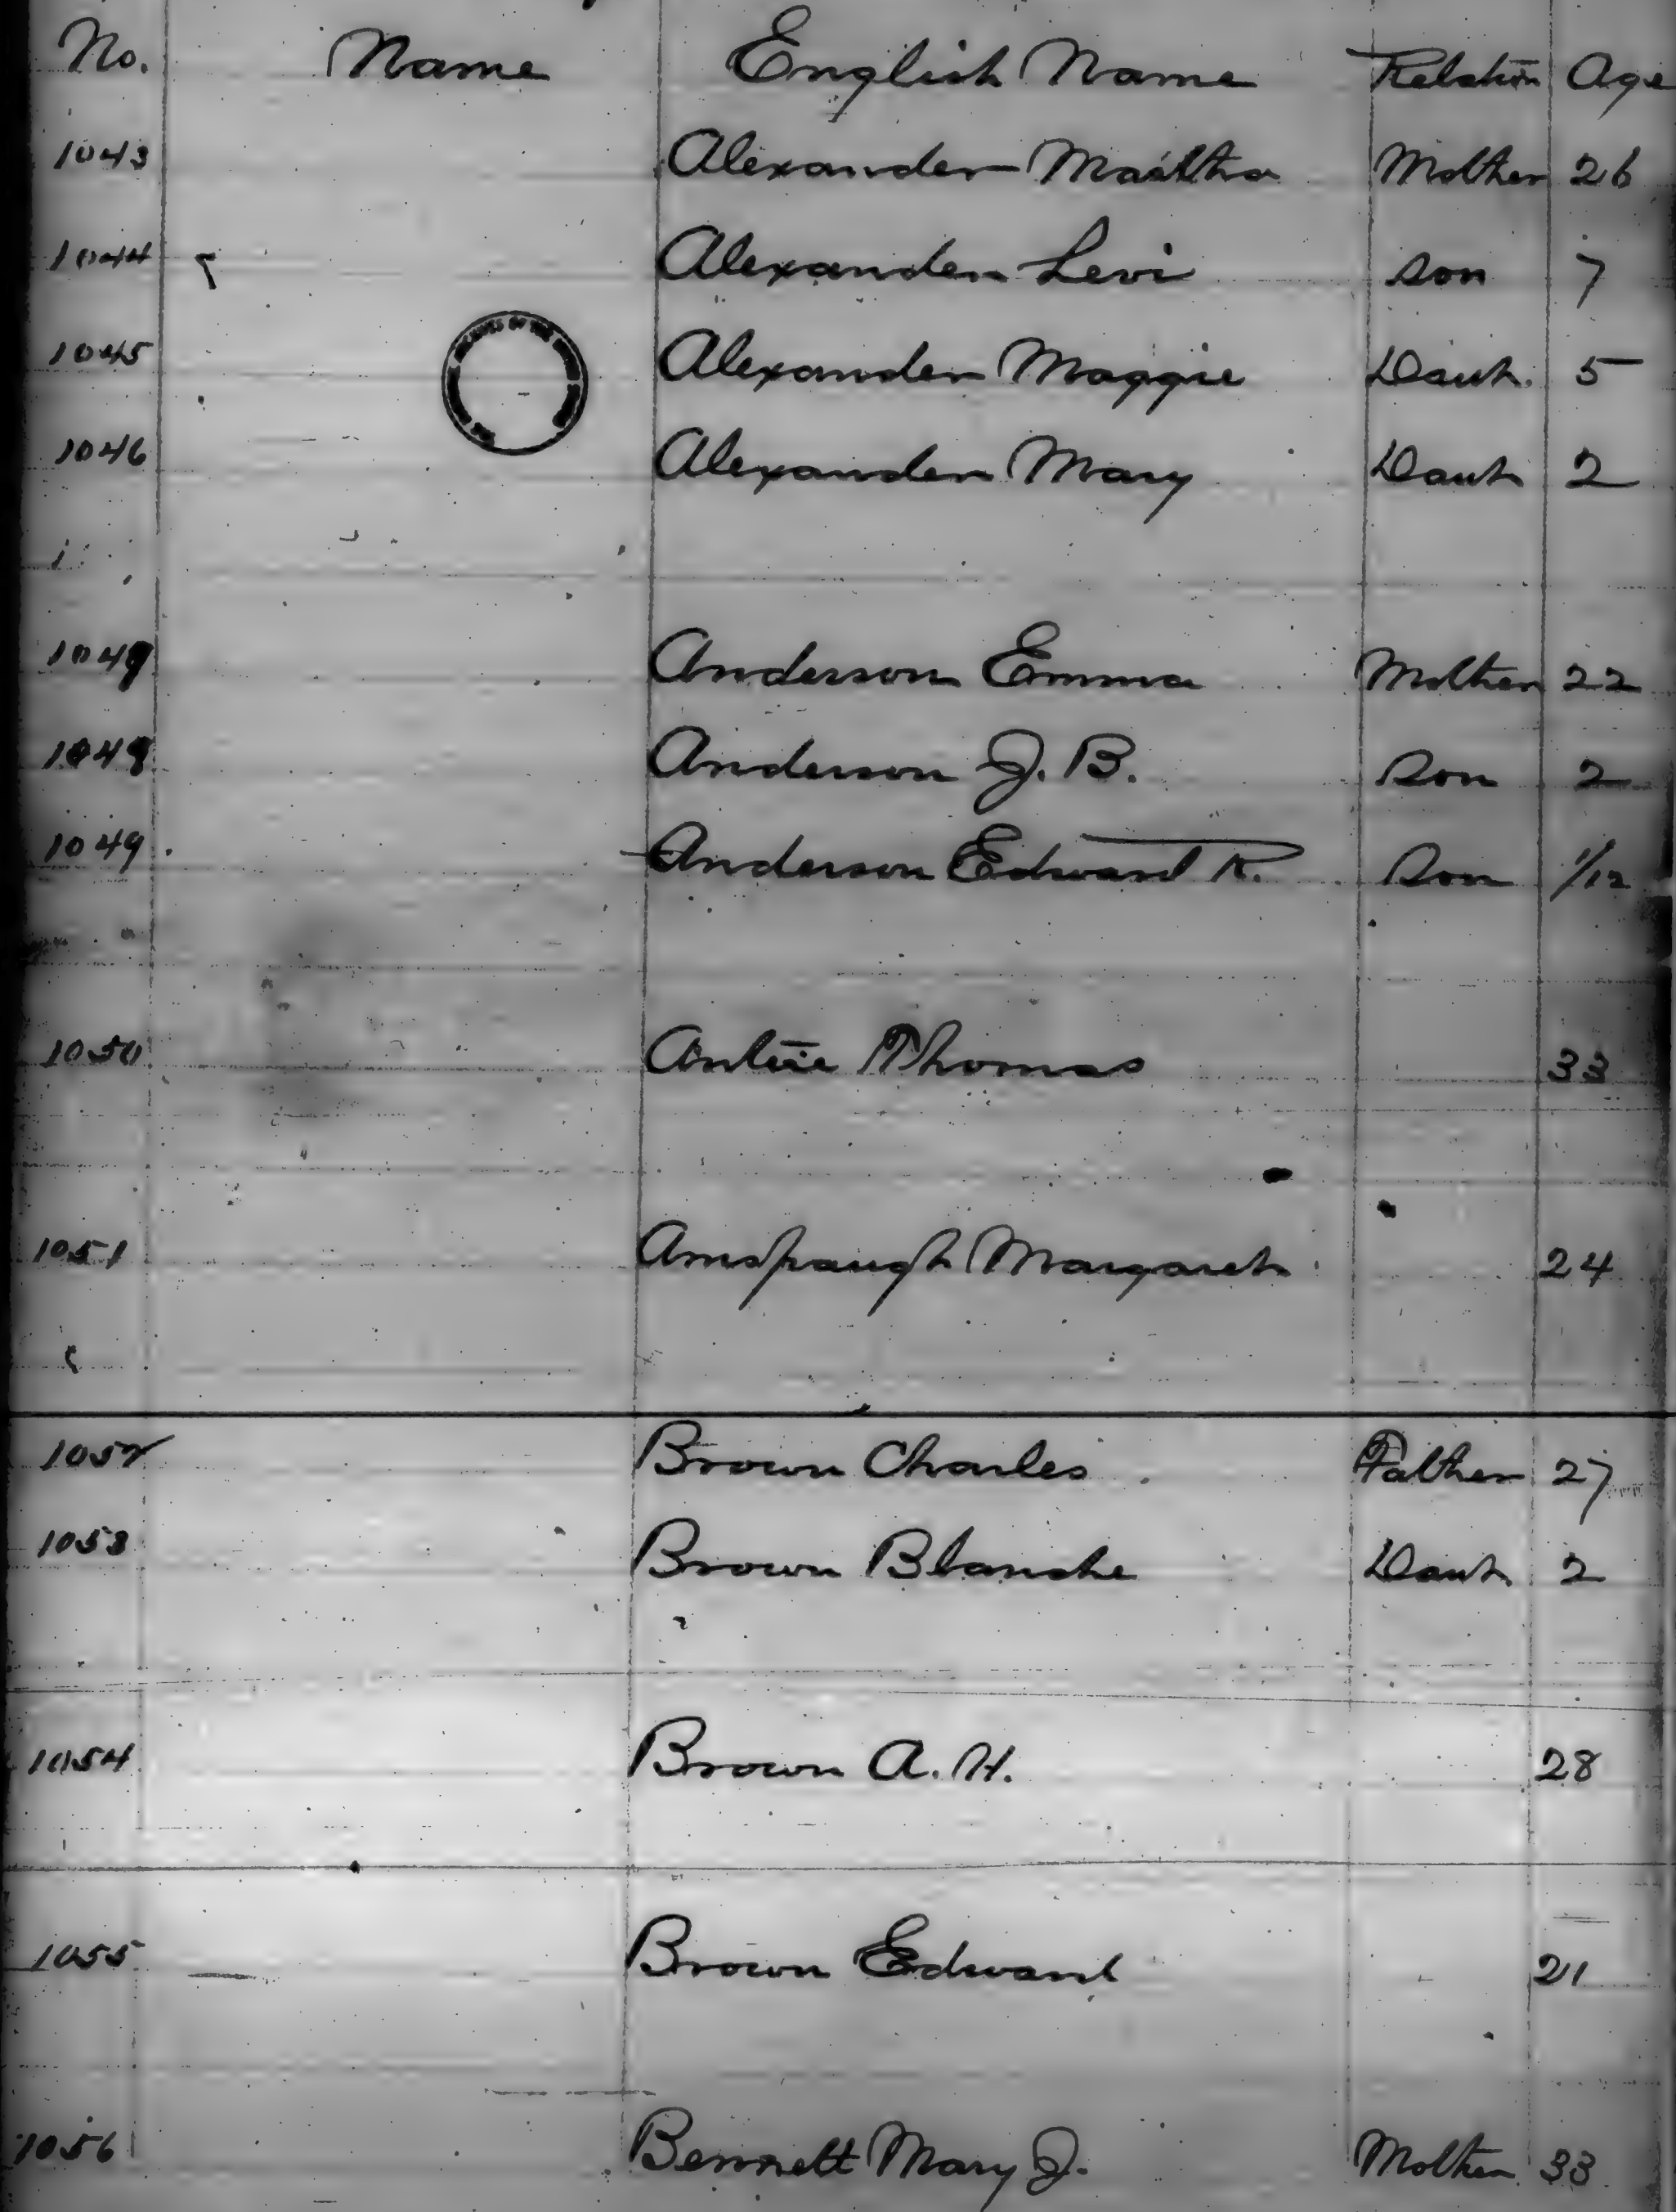 No. Name English Name Relation Age
1043 Alexander Martha Mother 26
1044 Alexander Levi Son 7
1045 Alexander Maggie Dauh. 5
1046 Alexander Mary Dauh 2
1047 Anderson Emma Mother 22
1048 Anderson J. B. Son 2
1049 Anderson Edward R. Son 1/12
1050 Antire Thomas 33
1051 Amspaugh Margaret 24
1052 Brown Charles Father 27
1053 Brown Blanche Dauh. 2
1054 Brown A. H. 28
1055 Brown Edward 21
1056 Bennett Mary J. Mother 33